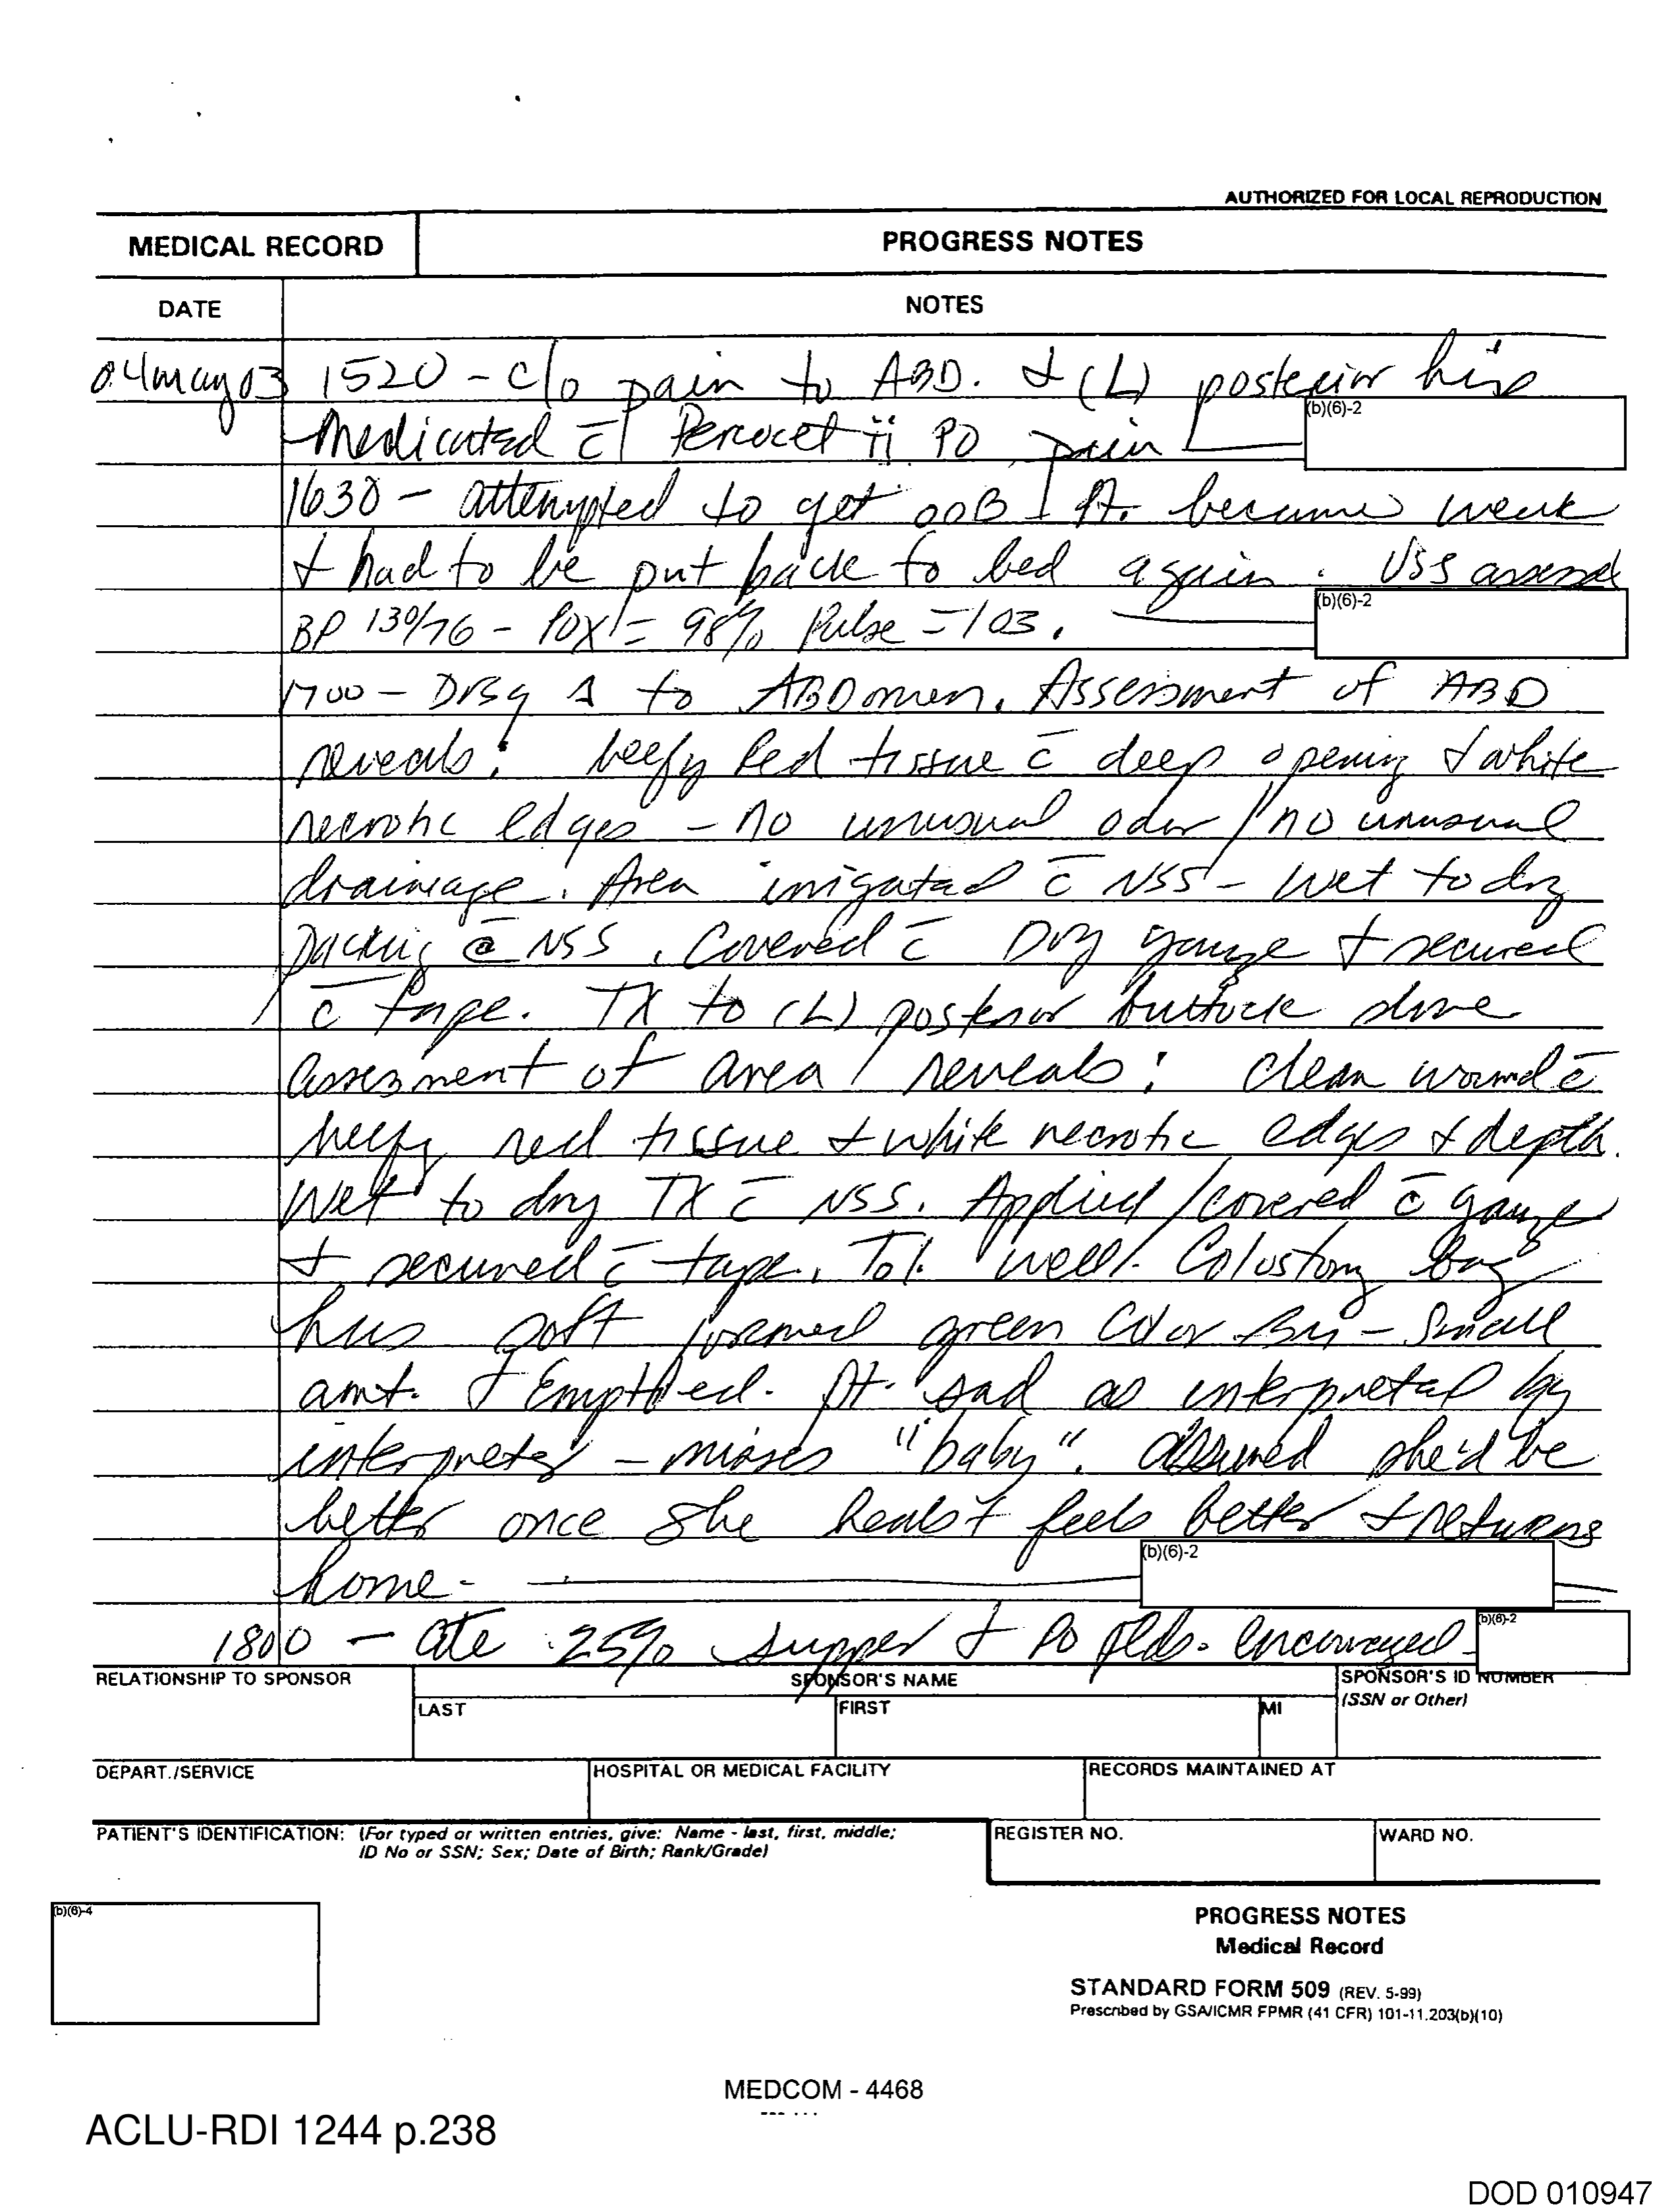 AUTHORIZED FOR LOCAL REPRODUCTION
MEDICAL RECORD
PROGRESS NOTES
DATE
NOTES
04may03 1520 - c/o pain to ABD. & (L) posterior hip
(b)(6)-2
Medicated c̄ Percocet ii PO pain
1630 - attempted to get OOB Pt. became weak
& had to be put back to bed again. VSS assessed
(b)(6)-2
BP 130/76 - POX = 98% Pulse = 103.
1700 - Drsg Δ to ABDomen. Assessment of ABD
reveals: beefy Red tissue c̄ deep opening & white
necrotic edges - no unusual odor / no unusual
drainage. Area irrigated c̄ NSS - wet to dry
packing c̄ NSS. Covered c̄ Dry gauze & secured
c̄ tape. TX to (L) posterior buttock done
assesment of area reveals: clean wound c̄
beefy red tissue & white necrotic edges & depth.
Wet to dry TX c̄ NSS. Applied / covered c̄ gauze
& secured c̄ tape. Tol. well. Colostomy bag
has soft formed green color - small
amt. & Emptied. Pt. sad as interpreted by
interpreter - misses "baby". assured she'd be
better once she heals & feels better & returns
(b)(6)-2
home -
1800 - ate 25% supper & PO flds. encouraged -
(b)(6)-2
RELATIONSHIP TO SPONSOR
SPONSOR'S NAME
SPONSOR'S ID NUMBER
(SSN or Other)
LAST
FIRST
MI
DEPART./SERVICE
HOSPITAL OR MEDICAL FACILITY
RECORDS MAINTAINED AT
PATIENT'S IDENTIFICATION: (For typed or written entries, give: Name - last, first, middle;
ID No or SSN; Sex; Date of Birth; Rank/Grade)
REGISTER NO.
WARD NO.
(b)(6)-4
PROGRESS NOTES
Medical Record
STANDARD FORM 509 (REV. 5-99)
Prescribed by GSA/ICMR FPMR (41 CFR) 101-11.203(b)(10)
MEDCOM - 4468
ACLU-RDI 1244 p.238
DOD 010947